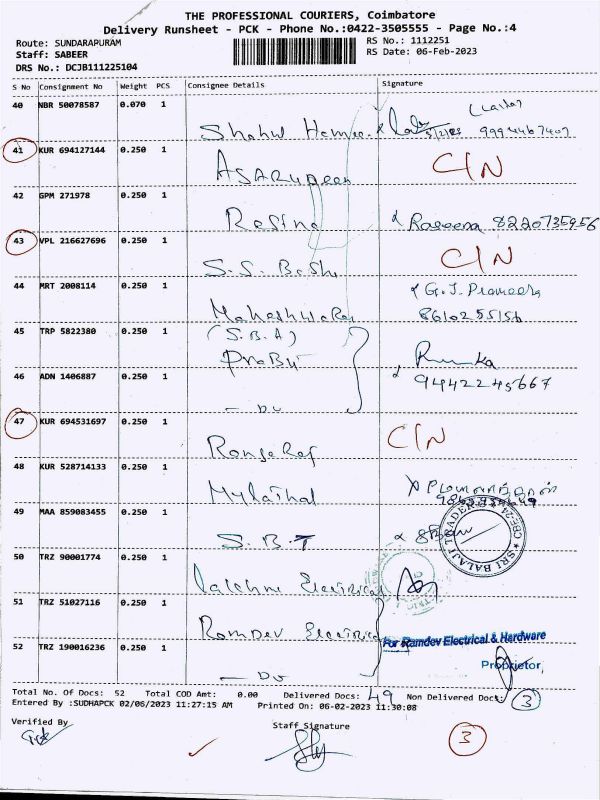 THE PROFESSIONAL COURIERS, Coimbatore
Delivery Runsheet - PCK - Phone No.:0422-3505555 - Page No.:4
Route: SUNDARAPURAM
RS No.: 1112251
Staff: SABEER
RS Date: 06-Feb-2023
DRS No.: DCJB111225104
S No Consignment No Weight PCS Consignee Details Signature
40 NBR 50078587 0.070 1 Shahul 9994467407
41 KUR 694127144 0.250 1 C/N
42 GPM 271978 0.250 1 Resina Raseena 8220735956
43 VPL 216627696 0.250 1 C/N
44 MRT 2008114 0.250 1 G.J. Prameela
8610255156
45 TRP 5822380 0.250 1 (S.B.A)
Prabu
46 ADN 1406887 0.250 1 9442245667
- Do
47 KUR 694531697 0.250 1 C/N
48 KUR 528714133 0.250 1 Mylathal
49 MAA 859083455 0.250 1 S.B.T
SRI BALAJI TRADERS
50 TRZ 90001774 0.250 1 Lakshmi Electrical
51 TRZ 51027116 0.250 1 Ramdev Electrical
For Ramdev Electrical & Hardware
52 TRZ 190016236 0.250 1 - Do
Proprietor
Total No. Of Docs: 52 Total COD Amt: 0.00 Delivered Docs: 49 Non Delivered Docs: 3
Entered By :SUDHAPCK 02/06/2023 11:27:15 AM Printed On: 06-02-2023 11:30:08
Verified By Staff Signature
3